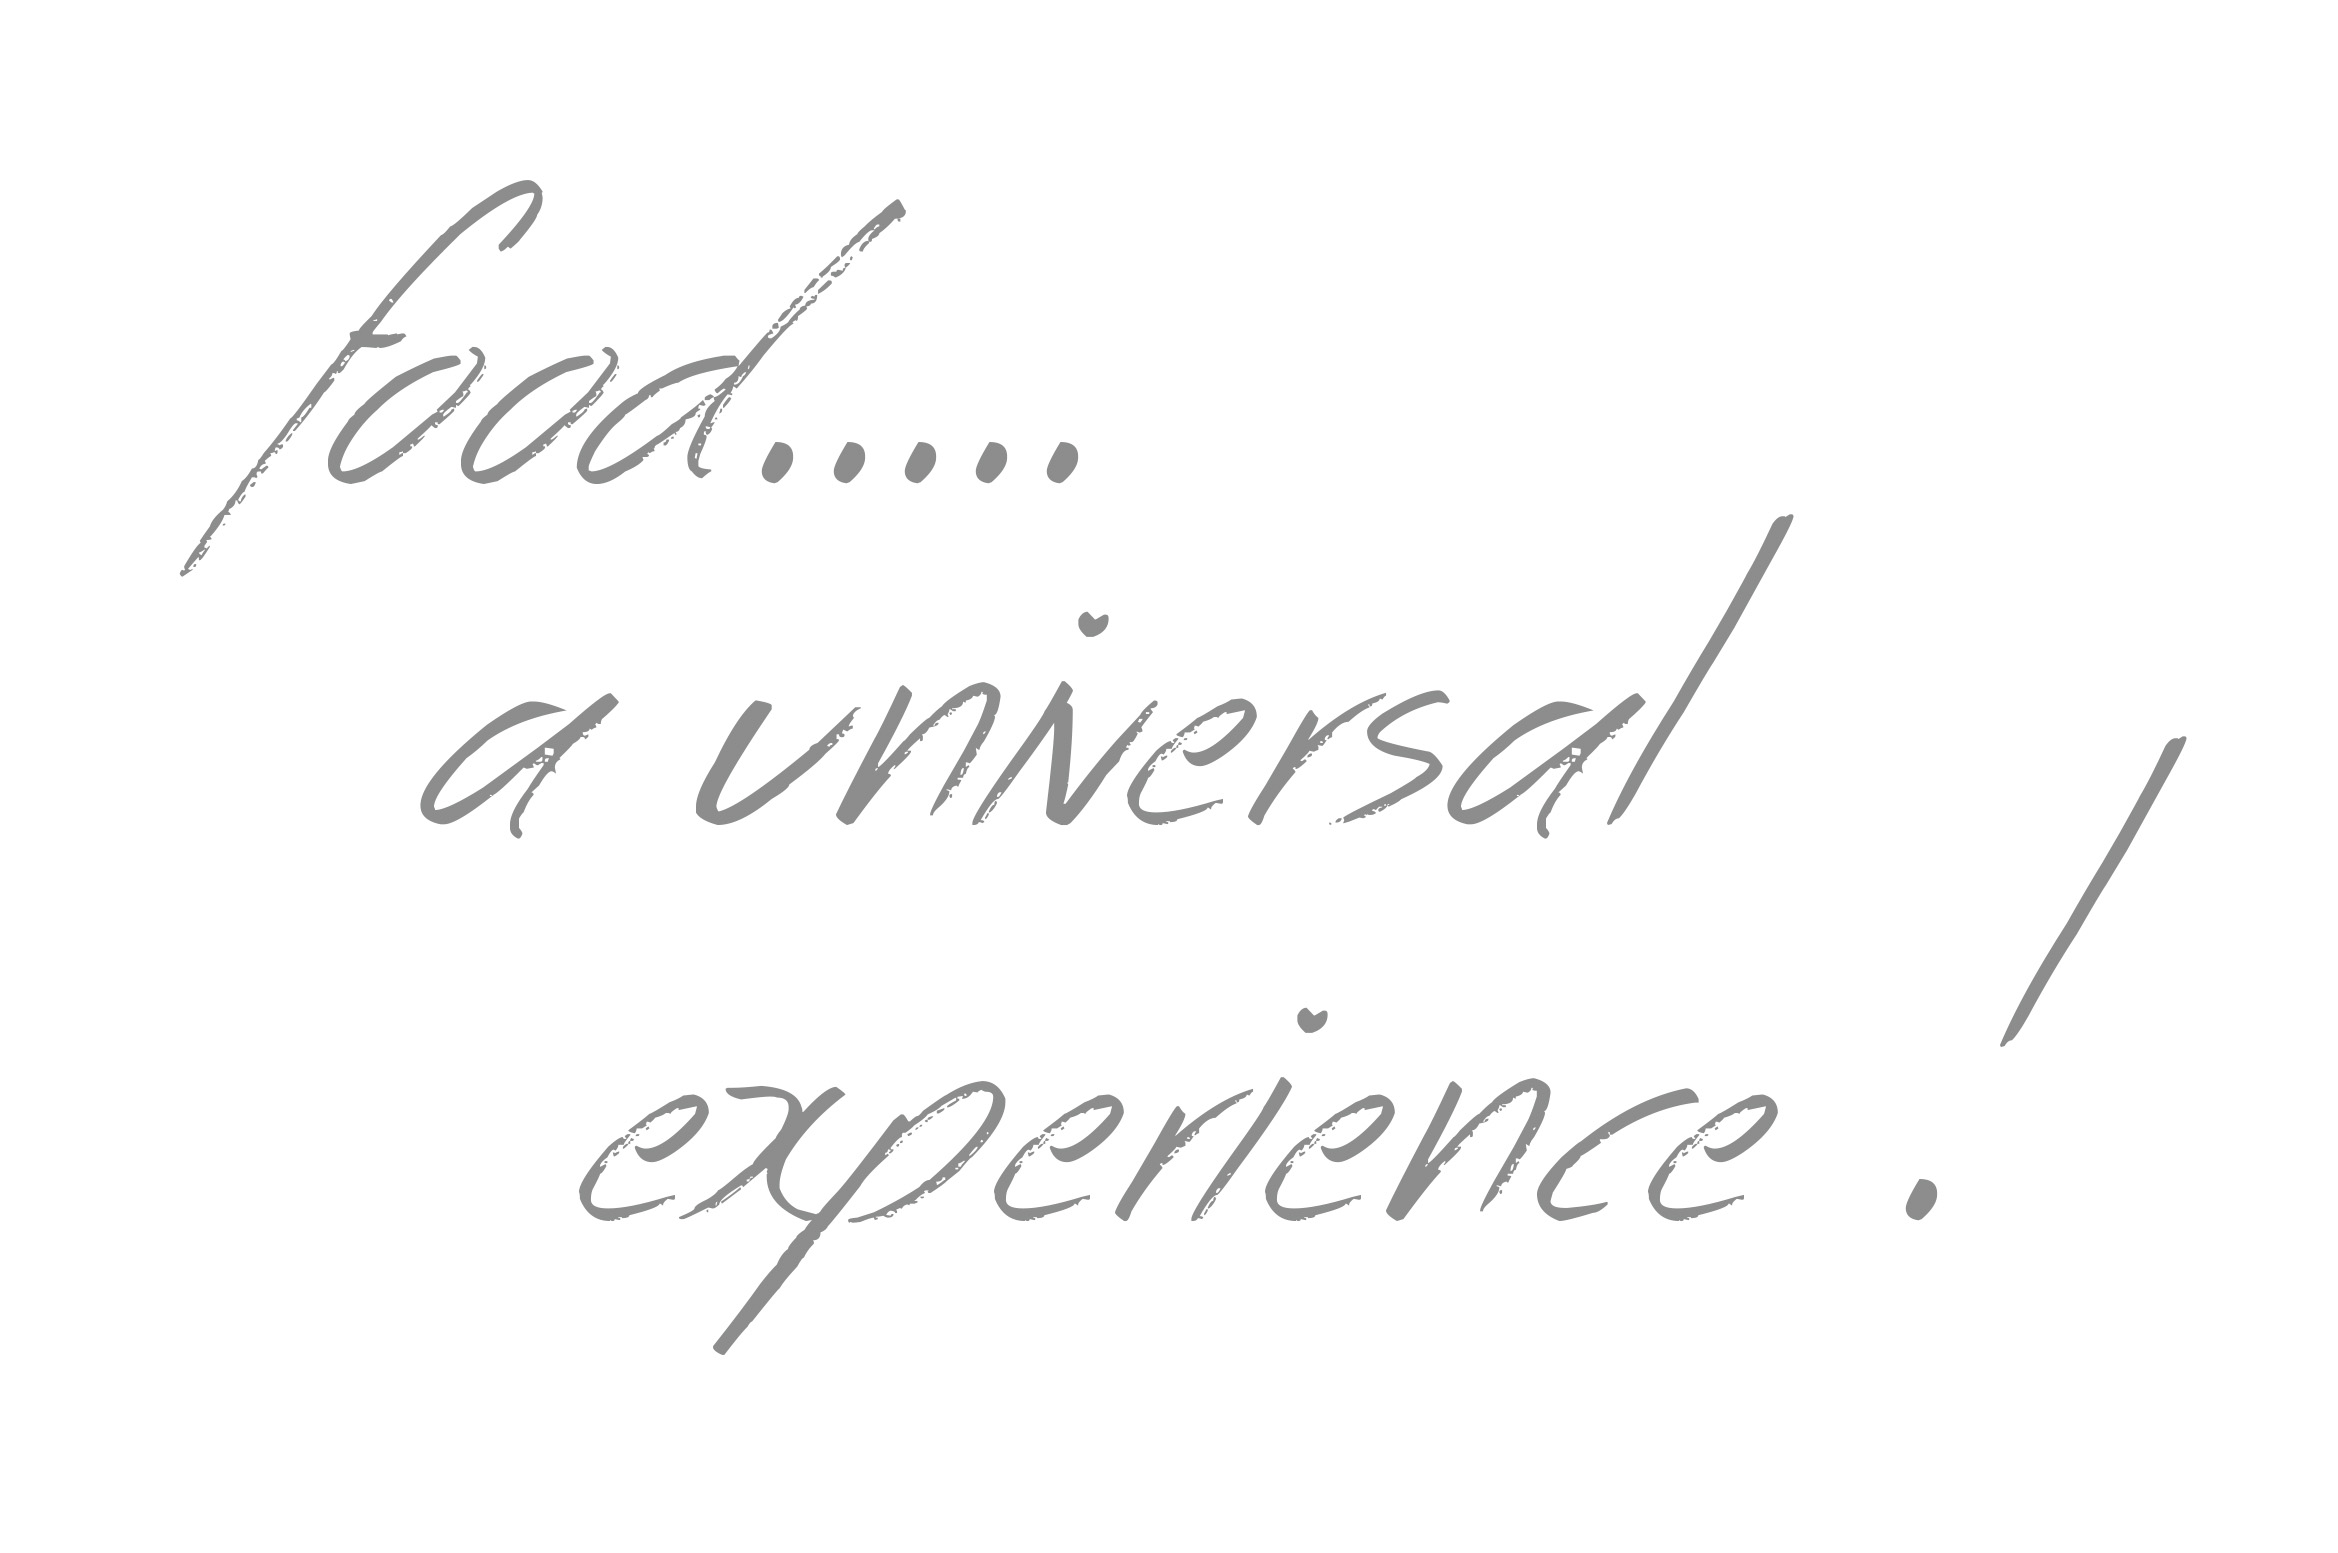 food.....
a universal
experience !